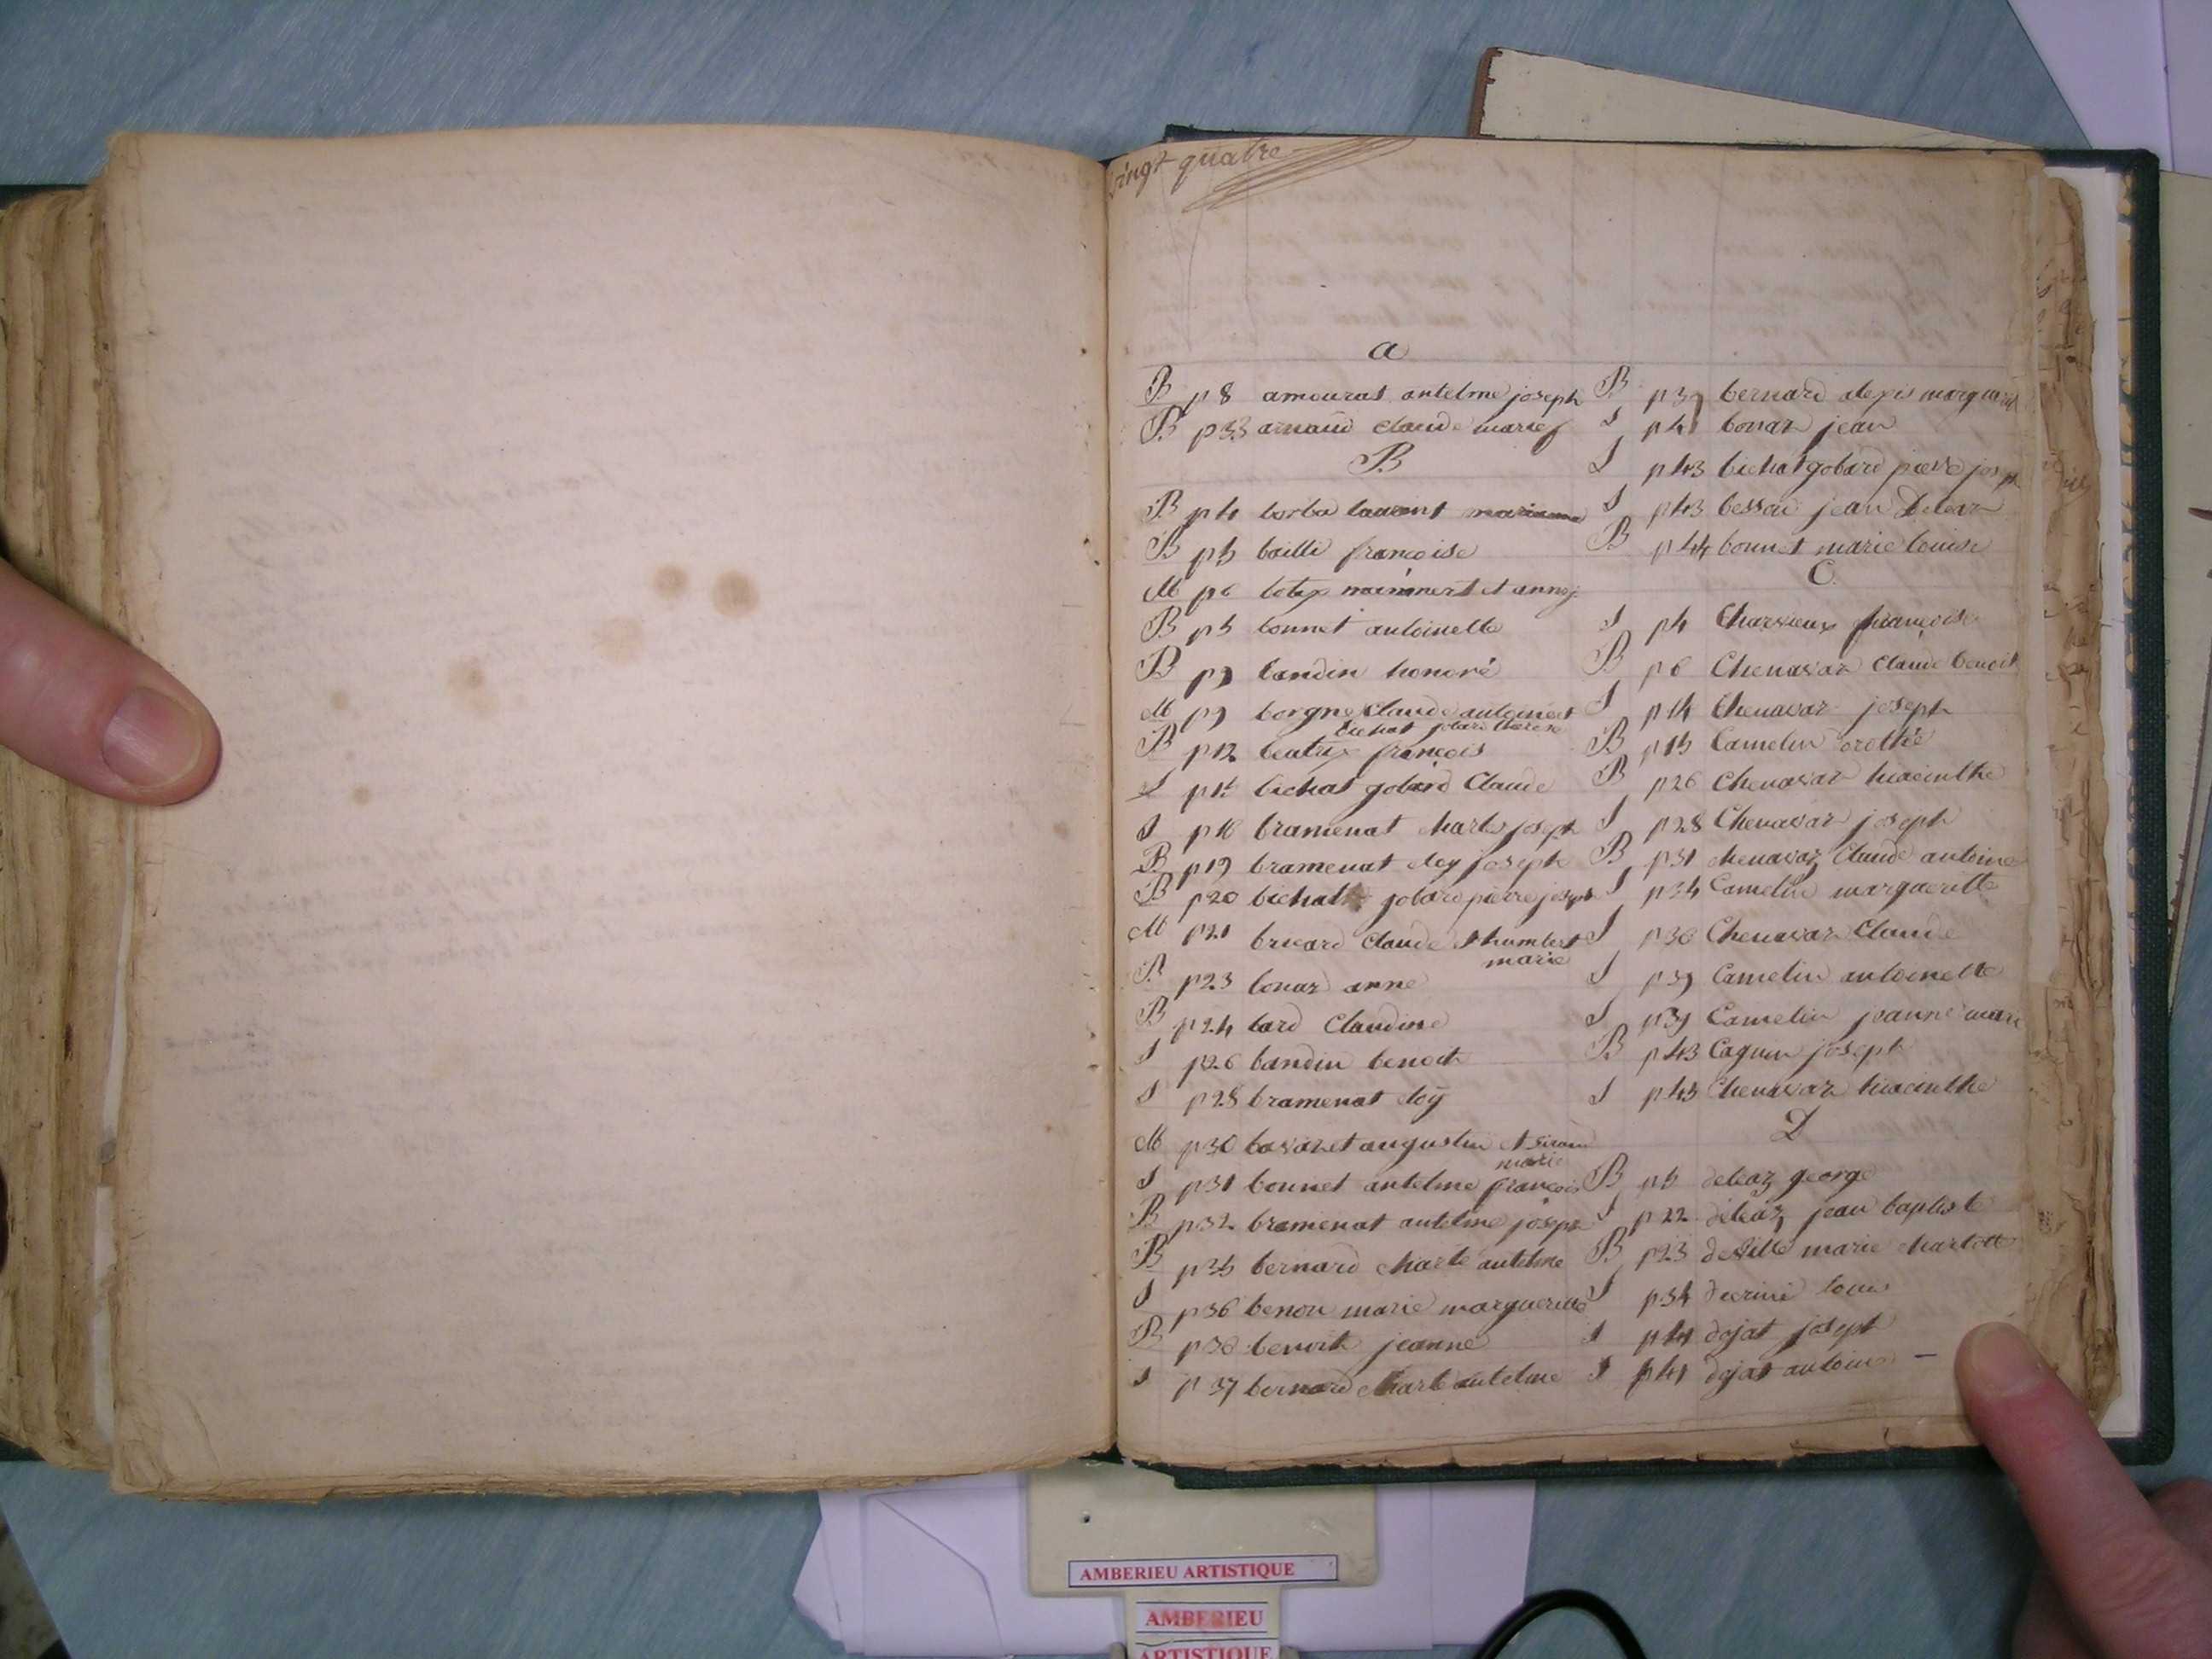 vingt quatre
a
B p 8 amourat antelme joseph
B p 33 arnaud claude marie
B
B p 4 borba laurent
B p 5 bailli francoise
M p 6 et anne
B p 5 bonnet antoinette
B p 9 baudin honoré
M p 9 borgne Claude antoine et
bichat jobard therese
B p 12 beatrix francois
S bichat gobard Claude
S p 18 bramenat charle joseph
B p 19 bramenat eloy joseph
B p 20 bichat jobard pierre joseph
M p 21 claude et humbert
marie
B p 23 bonaz anne
B p 24 bard Claudine
S p 26 baudin benoit
S p 28 bramenat eloÿ
M p 30 bavozet augustin et
marie
S p 31 bonnet antelme francois
B p 32 bramenat antelme joseph
B p 35 bernard charle antelme
S p 36 benou marie marguerite
B benoit jeanne
S p 37 bernard charle antelme
B p 39 bernard alexis
S p 41 bonaz jean
S p 43 bichat gobard pierre joseph
S p 43 besson jean
B p 44 bonnet marie louise
C
S p 4 Charvieux francoise
B p 6 Chenavaz Claude benoit
S p 14 Chenavaz joseph
B p 15 Camelin
B p 26 Chenavaz hiacinthe
S p 28 Chenavaz joseph
B p 31 chenavaz Claude antoine
S p 34 Camelin margueritte
S p 36 Chenavaz Claude
S p 39 Camelin antoinette
S p 39 Camelin jeanne marie
B p 43 joseph
S p 45 Chenavaz hiacinthe
D
B p 5 deleaz george
S p 22 deleaz jean baptiste
B p 23 deville marie charlotte
S p 34 louis
S p 41 dojat joseph
S p 41 dojat antoine –
AMBERIEU ARTISTIQUE
AMBERIEU
ARTISTIQUE